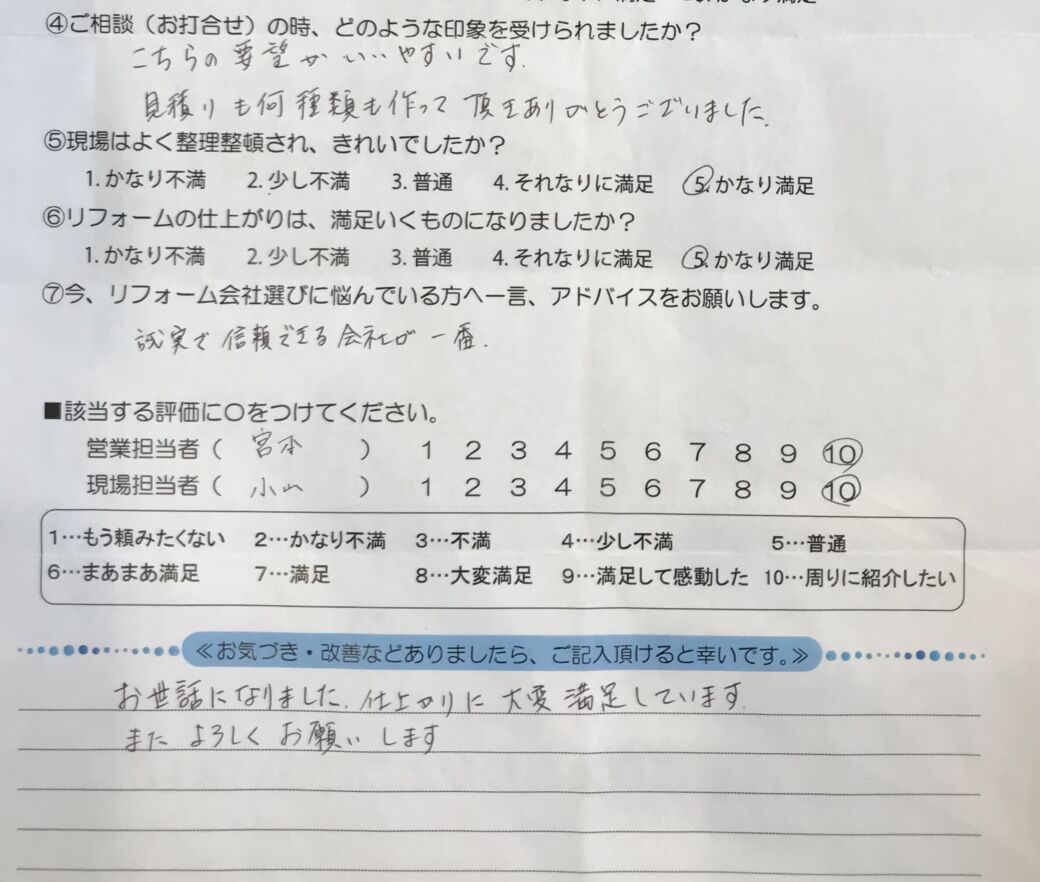 ④ご相談（お打合せ）の時、どのような印象を受けられましたか？
こちらの要望がいいやすいです.
見積りも何種類も作って頂きありがとうございました.
⑤現場はよく整理整頓され、きれいでしたか？
1.かなり不満 2.少し不満 3.普通 4.それなりに満足 5.かなり満足
⑥リフォームの仕上がりは、満足いくものになりましたか？
1.かなり不満 2.少し不満 3.普通 4.それなりに満足 5.かなり満足
⑦今、リフォーム会社選びに悩んでいる方へ一言、アドバイスをお願いします。
誠実で信頼できる会社が一番.
■該当する評価に〇をつけてください。
営業担当者（ 宮本 ） 1 2 3 4 5 6 7 8 9 10
現場担当者（ 小山 ） 1 2 3 4 5 6 7 8 9 10
1…もう頼みたくない 2…かなり不満 3…不満 4…少し不満 5…普通
6…まあまあ満足 7…満足 8…大変満足 9…満足して感動した 10…周りに紹介したい
≪お気づき・改善などありましたら、ご記入頂けると幸いです。≫
お世話になりました.仕上がりに大変満足しています.
またよろしくお願いします